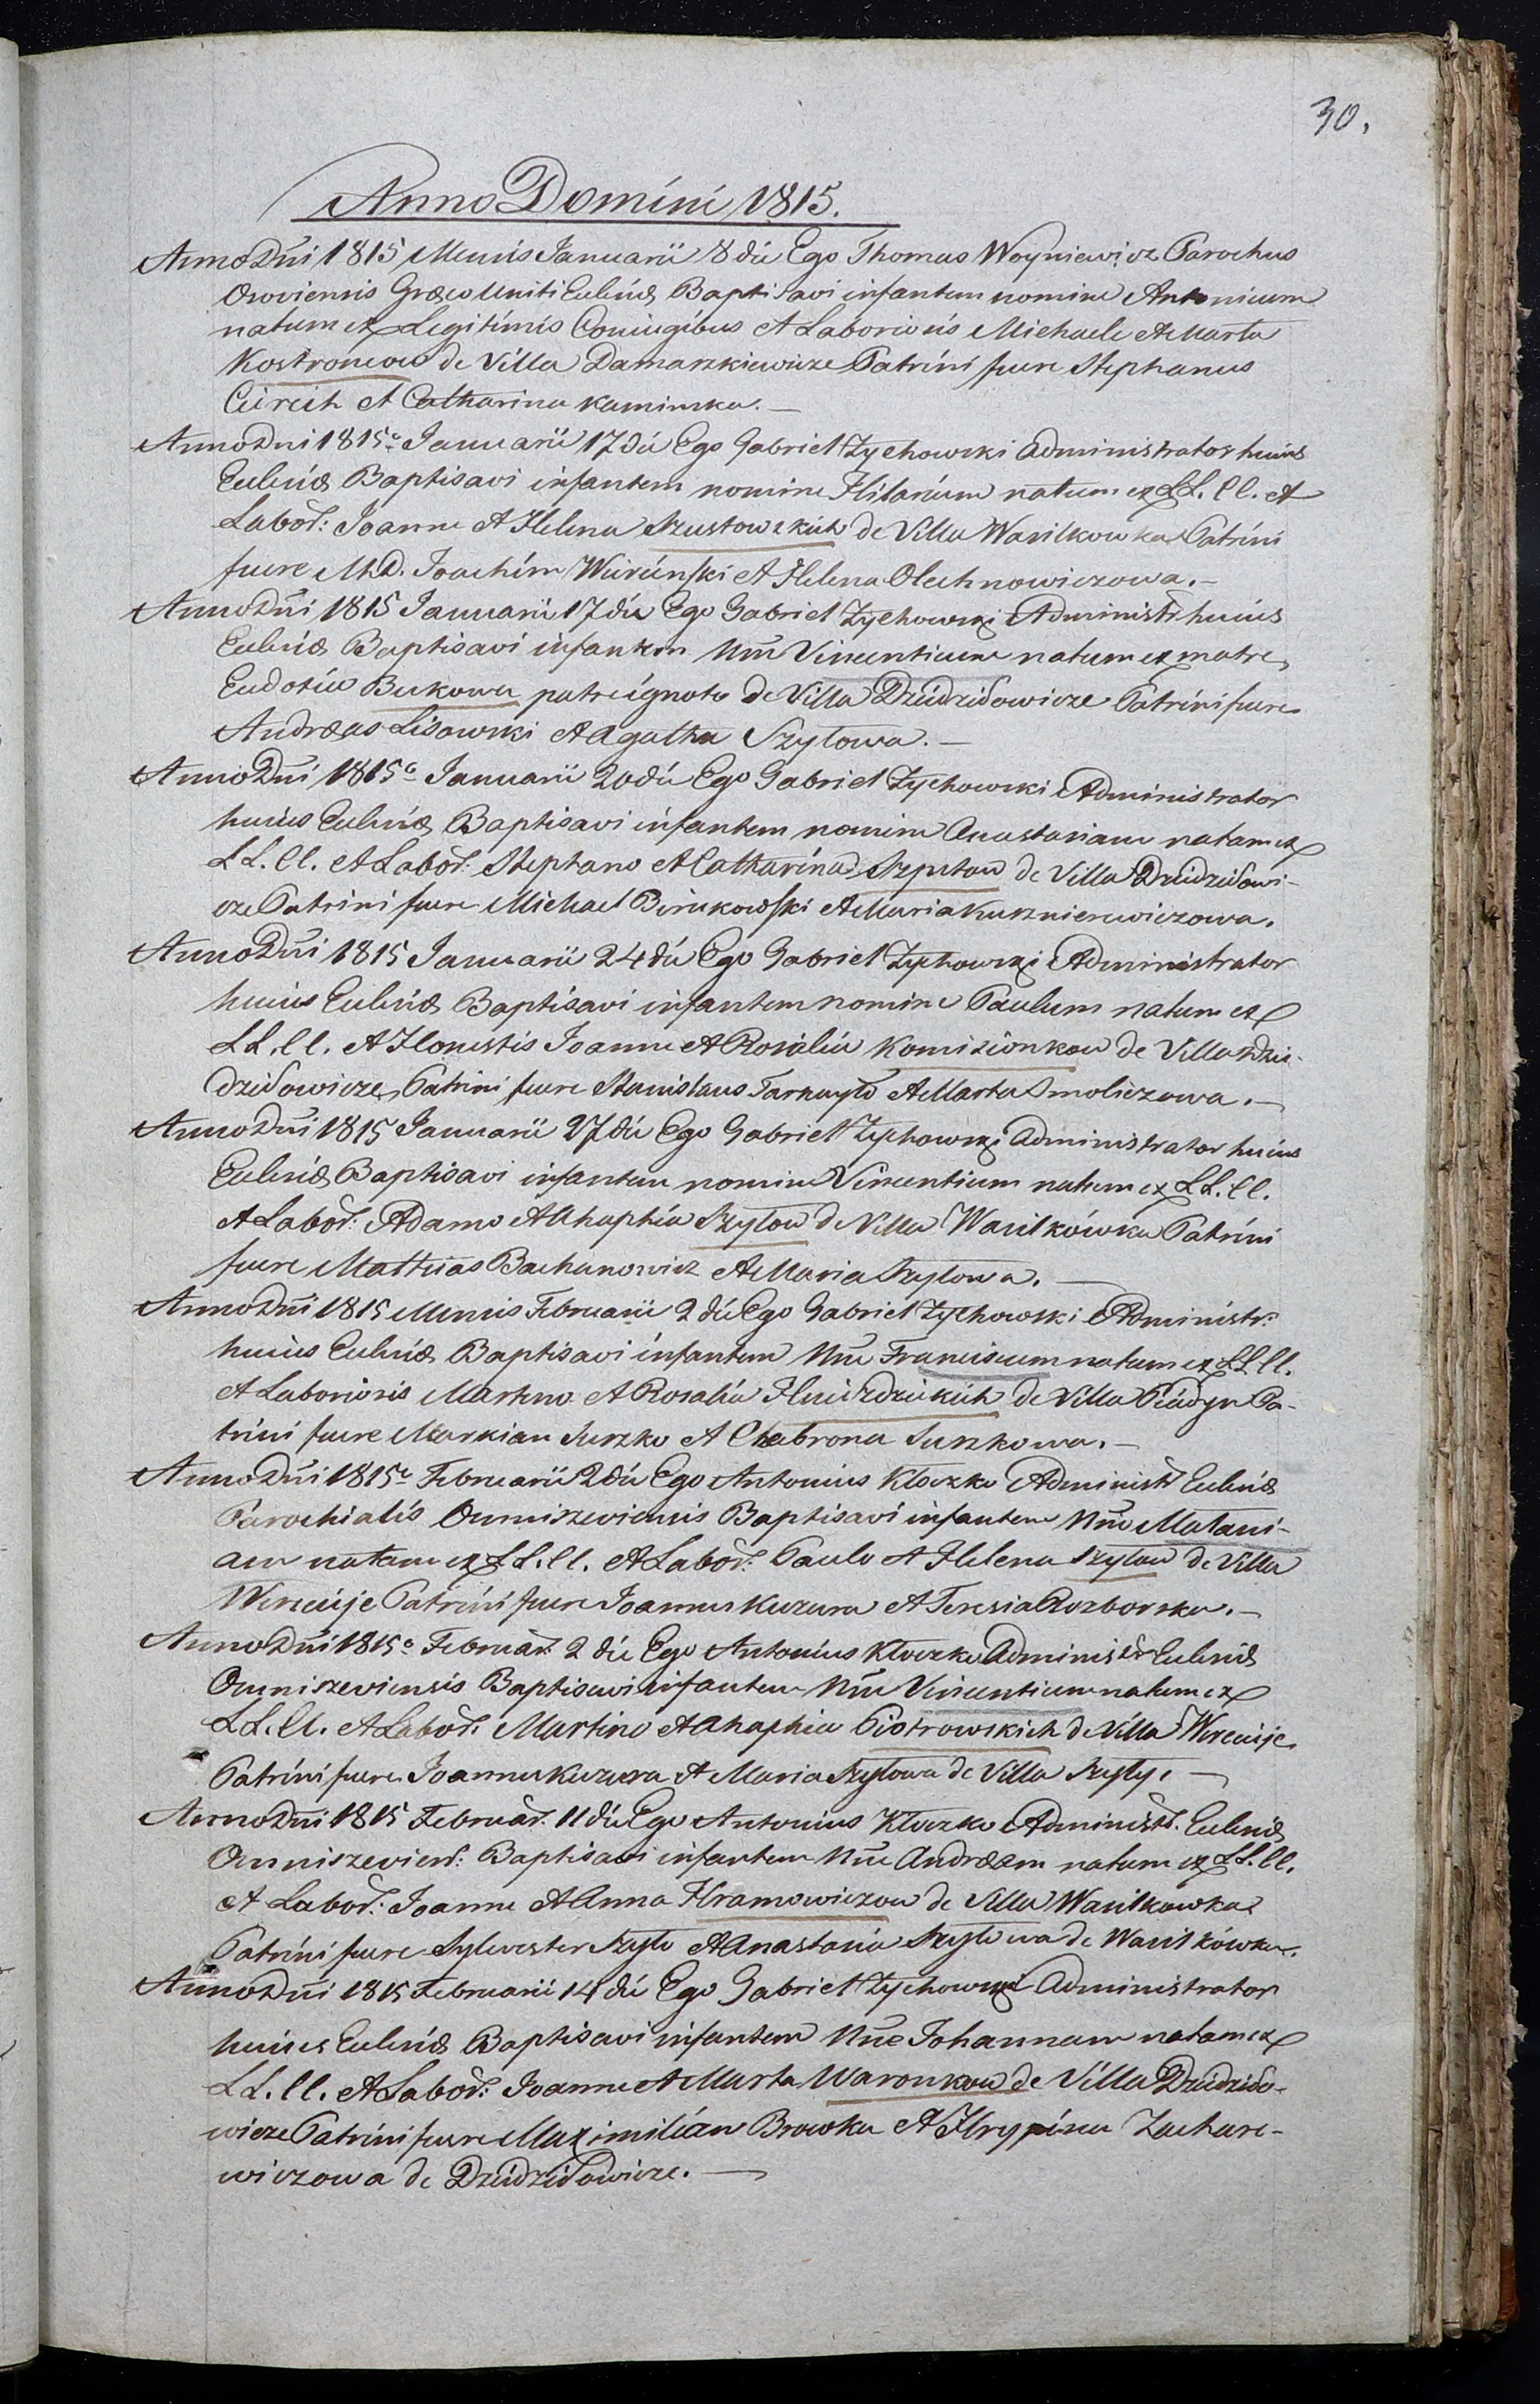 30.
Anno Domini 1815.
Anno Dni 1815 Mensis Januarii 8 die Ego Thomas Woyniewicz Parochus
Osoviensis Græco Uniti Eccliæ Baptisavi infantem nomine Antonium
natum ex Legitimis Coniugibus et Laboriosis Michaele et Marta
Kostroncow de Villa Damaszkiewicze Patrini fuere Stephanus
et Catharina Kaminska. —
Anno Dni 1815o Januarii 17 die Ego Gabriel Zychowski Administrator huius
Eccliæ Baptisavi infantem nomine Hilarium natum ex LL. CC. et
Labor: Joanne et Helena Szustowskich de Villa Wasilkowka Patrini
fuere M.D. Joachim et Helena Olechnowiczowa. —
Anno Dni 1815 Januarii 17 die Ego Gabriel Zychowski Administr huius
Eccliæ Baptisavi infantem Nne Vincentium natum ex matre
Eudosia Bukowa patre ignoto de Villa Dziedziłowicze Patrini fuere
Andreas Lisowski et Agatha Szyłowa. —
Anno Dni 1815o Januarii 20 die Ego Gabriel Zychowski Administrator
huius Eccliæ Baptisavi infantem nomine Anastasiam natam ex
LL. CC. et Labor: Stephano et Catharina de Villa Dziedziłowi-
cze Patrini fuere Michael Birukowski et Maria Kusznierewiczowa.
Anno Dni 1815 Januarii 24 die Ego Gabriel Zychowski Administrator
huius Eccliæ Baptisavi infantem nomine Paulum natum ex
LL. CC. et Honestis Joanne et Rosalia Komizionkow de Villa Dzie-
dziłowicze Patrini fuere Stanislaus Tarnayło et Marta Smoliczowa. —
Anno Dni 1815 Januarii 27 die Ego Gabriel Zychowski Administrator huius
Eccliæ Baptisavi infantem nomine Vincentium natum ex LL. CC.
et Labor: Adamo et Ahaphia Szyłow de Villa Wasilkówka Patrini
fuere Mathias Bachanowicz et Maria Szyłowa. —
Anno Dni 1815 Mensis Februarii 2 die Ego Gabriel Zychowski Administr:
huius Eccliæ Baptisavi infantem Nne Franciscum natum ex LL CC.
et Laboriosis Martino et Rosalia de Villa Pa-
trini fuere Markian Suszko et Chebrona Suszkowa. —
Anno Dni 1815o Februarii 2 die Ego Antonius Kłoczko Administr Eccliæ
Parochialis Omniszeviensis Baptisavi infantem Nne Malani-
am natam ex LL. CC. et Labor: Paulo et Helena Szyłow de Villa
Wereuje Patrini fuere Joannes Kuzura et Teresia Rozborska. —
Anno Dni 1815o Februar: 2 die Ego Antonius Kłoczko Administr Eccliæ
Omniszeviensis Baptisavi infantem Nne Vincentium natum ex
LL. CC. et Labor: Martino et Ahaphia Piotrowskich de Villa Wereuje
Patrini fuere Joannes Kuzura et Maria Szyłowa de Villa Szyły. —
Anno Dni 1815 Februar: 11 die Ego Antonius Kłoczko Administr. Eccliæ
Omniszevien: Baptisavi infantem Nne Andream natum ex LL. CC.
et Labor: Joanne et Anna Hramowiczow de Villa Wasilkowka
Patrini fuere Sylvester Szyło et Anastasia Szyłowa de Wasilkówka.
Anno Dni 1815 Februarii 14 die Ego Gabriel Zychowski Administrator
huius Eccliæ Baptisavi infantem Nne Johannam natam ex
LL. CC. et Labor: Joanne et Marta Waronkow de Villa Dziedziło-
wicze Patrini fuere Maximilian Browka et Hrypina Zachare-
wiczowa de Dziedziłowicze. —